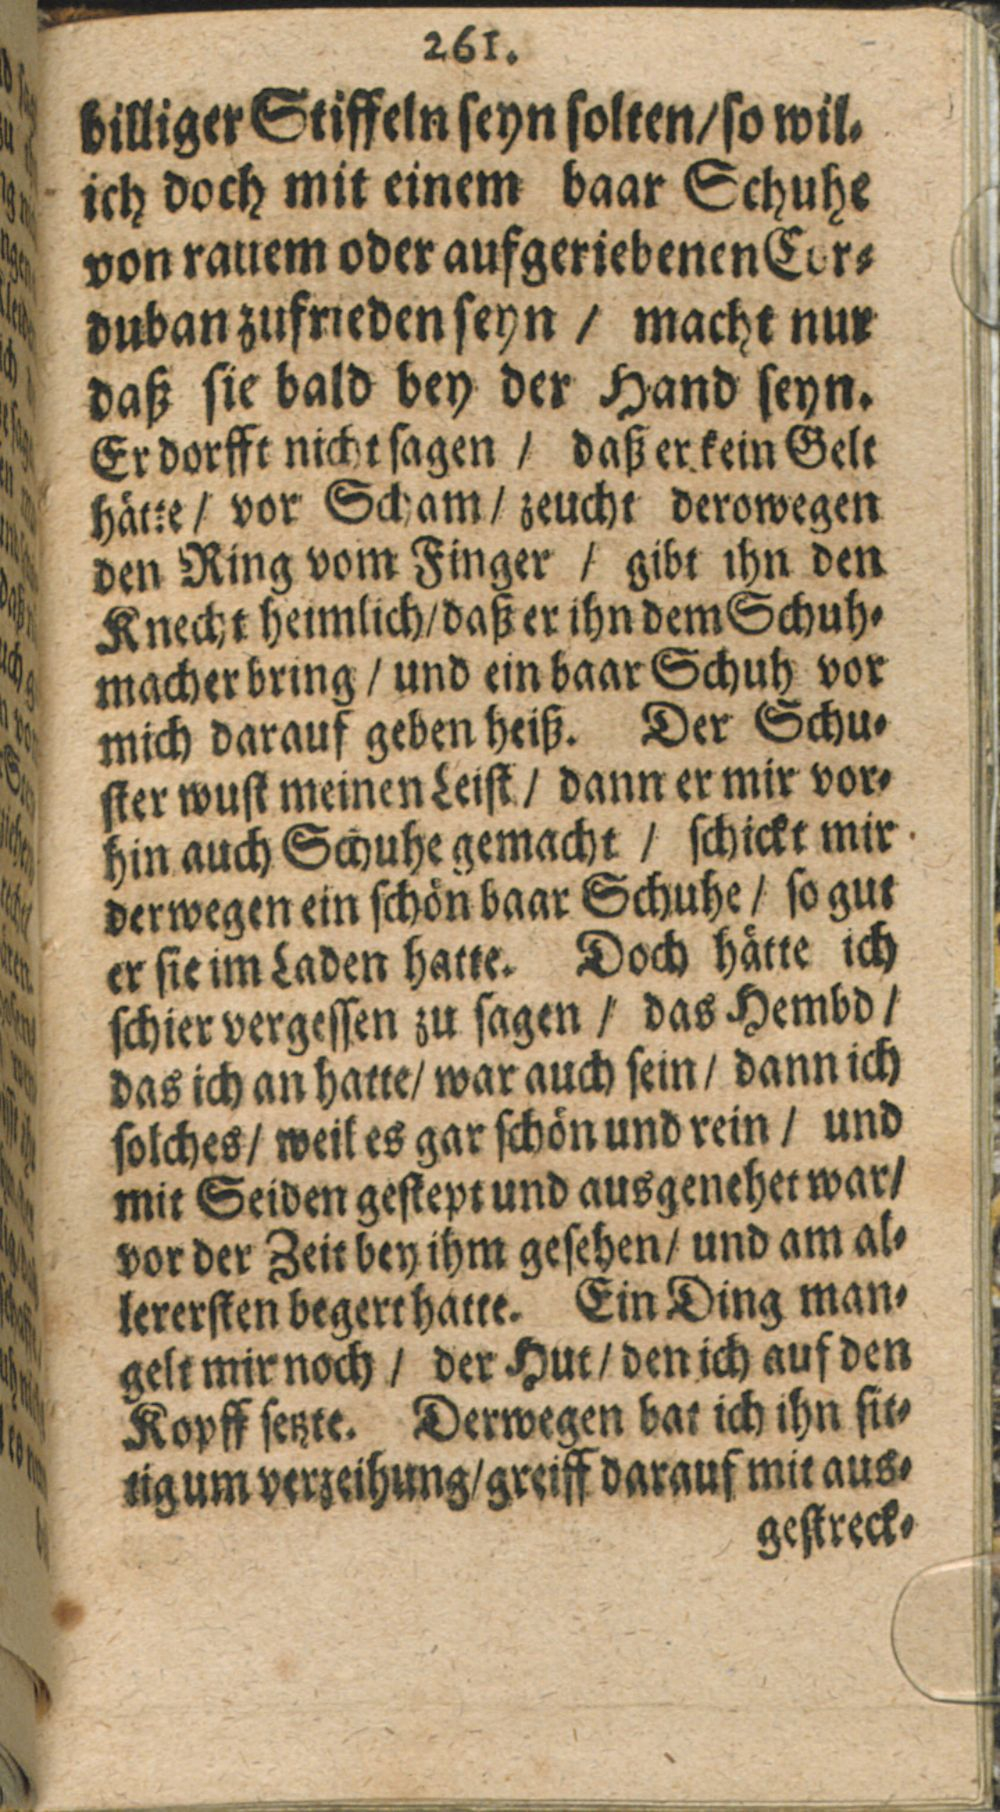 261.
billiger Stiffeln seyn solten/so wil⸗
ich doch mit einem baar Schuhe
von rauem oder aufgeriebenen Cor⸗
duban zufrieden seyn / macht nur
daß sie bald bey der Hand seyn.
Er dorfft nicht sagen / daß er kein Gelt
hätte/ vor Scham/ zeucht derowegen
den Ring vom Finger / gibt ihn den
Knecht heimlich/daß er ihn dem Schuh⸗
macher bring / und ein baar Schuh vor
mich darauf geben heiß. Der Schu⸗
ster wust meinen Leist / dann er mir vor⸗
hin auch Schuhe gemacht / schickt mir
derwegen ein schön baar Schuhe / so gut
er sie im Laden hatte. Doch hätte ich
schier vergessen zu sagen / das Hembd /
das ich an hatte/ war auch sein / dann ich
solches/ weil es gar schön und rein / und
mit Seiden gestept und ausgenehet war/
vor der Zeit bey ihm gesehen/ und am al⸗
lerersten begert hatte. Ein Ding man⸗
gelt mir noch / der Hut / den ich auf den
Kopff setzte. Derwegen bat ich ihn sit⸗
tig um verzeihung/greiff darauf mit aus⸗
gestreck⸗